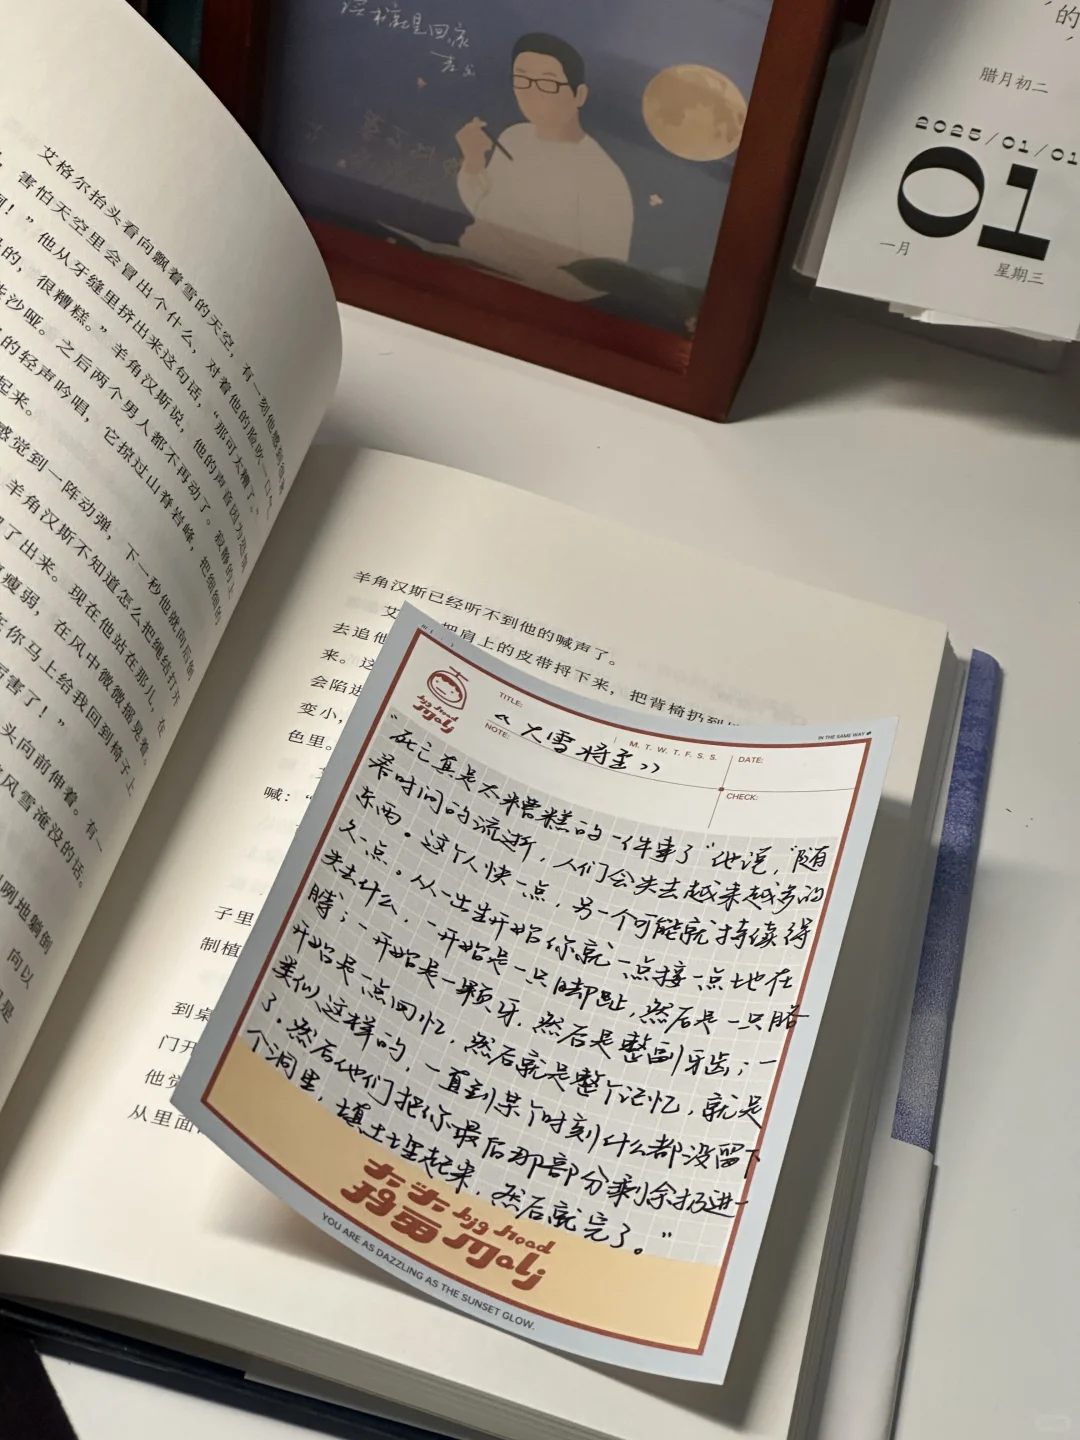 的
腊月初二
2025/01/01
01
一月
星期三
艾格尔抬头看向飘着雪的天空，有一刻他感到很
害怕天空里会冒出个什么，对着他的脸吹一口气
！”他从牙缝里挤出来这句话，“那可太糟了。”
的，很糟糕。”羊角汉斯说，他的声音因为
沙哑。之后两个男人都不再动了。寂静的上
的轻声吟唱，它掠过山脊岩峰，把细细的
起来。
感觉到一阵动弹，下一秒他就向后倒
羊角汉斯不知道怎么把绳结打开
了出来。现在他站在那儿，在
瘦弱，在风中微微摇晃着。
在你马上给我回到椅子上
厉害了！”
头向前伸着。有一
风雪淹没的话。
咧地躺倒
向以
是
羊角汉斯已经听不到他的喊声了。
艾
把肩上的皮带捋下来，把背椅扔到
去追他
来。这
会陷进
变小，
色里。
喊：“
子里
制植
到桌
门开
他觉
从里面
big head
TITLE:
《大雪将至》
M. T. W. T. F. S. S.
DATE:
IN THE SAME WAY
NOTE:
CHECK:
“死亡真是太糟糕的一件事了”他说，“随
着时间的流逝，人们会失去越来越多的
东西。这个人快一点，另一个可能就持续得
久一点。从一出生开始你就一点接一点地在
失去什么，一开始是一只脚趾，然后是一只胳
膊；一开始是一颗牙，然后是整副牙齿；一
开始是一点回忆，然后就是整个记忆，就是
类似这样的，一直到某个时刻什么都没留下
了。然后他们把你最后那部分剩余扔进一
个洞里，填土埋起来，然后就完了。”
big head
YOU ARE AS DAZZLING AS THE SUNSET GLOW.